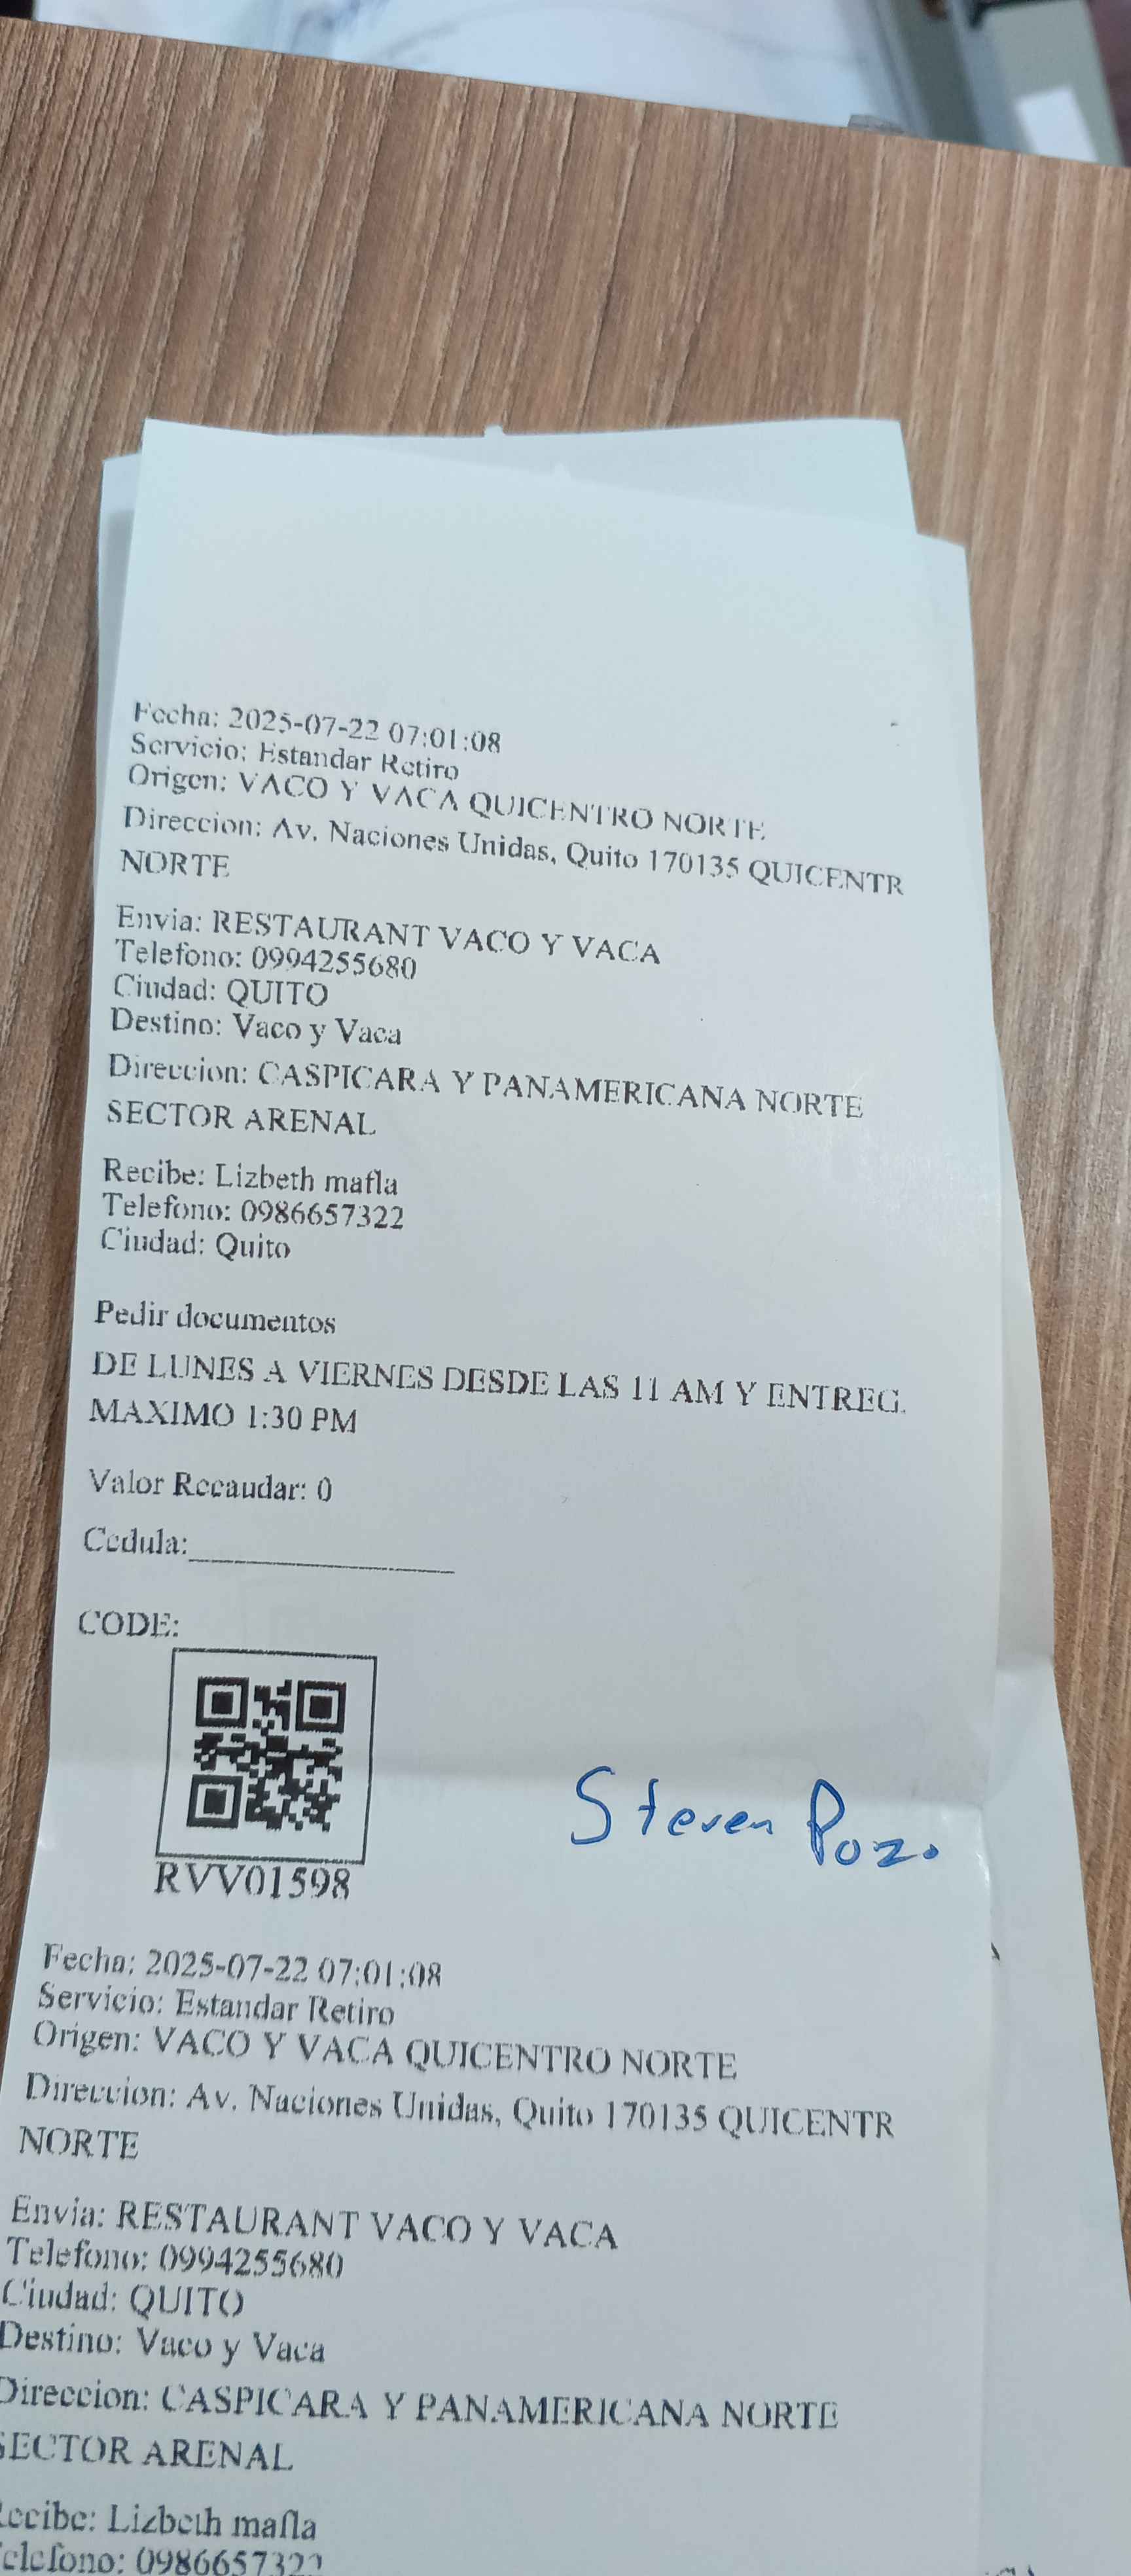 Fecha: 2025-07-22 07:01:08
Servicio: Estandar Retiro
Origen: VACO Y VACA QUICENTRO NORTE
Direccion: Av. Naciones Unidas, Quito 170135 QUICENTR
NORTE
Envia: RESTAURANT VACO Y VACA
Telefono: 0994255680
Ciudad: QUITO
Destino: Vaco y Vaca
Direccion: CASPICARA Y PANAMERICANA NORTE
SECTOR ARENAL
Recibe: Lizbeth mafla
Telefono: 0986657322
Ciudad: Quito
Pedir documentos
DE LUNES A VIERNES DESDE LAS 11 AM Y ENTREG.
MAXIMO 1:30 PM
Valor Recaudar: 0
Cedula:
CODE:
RVV01598
Steven Pozo
Fecha: 2025-07-22 07:01:08
Servicio: Estandar Retiro
Origen: VACO Y VACA QUICENTRO NORTE
Direccion: Av. Naciones Unidas, Quito 170135 QUICENTR
NORTE
Envia: RESTAURANT VACO Y VACA
Telefono: 0994255680
Ciudad: QUITO
Destino: Vaco y Vaca
Direccion: CASPICARA Y PANAMERICANA NORTE
SECTOR ARENAL
Recibe: Lizbeth mafla
Telefono: 0986657322